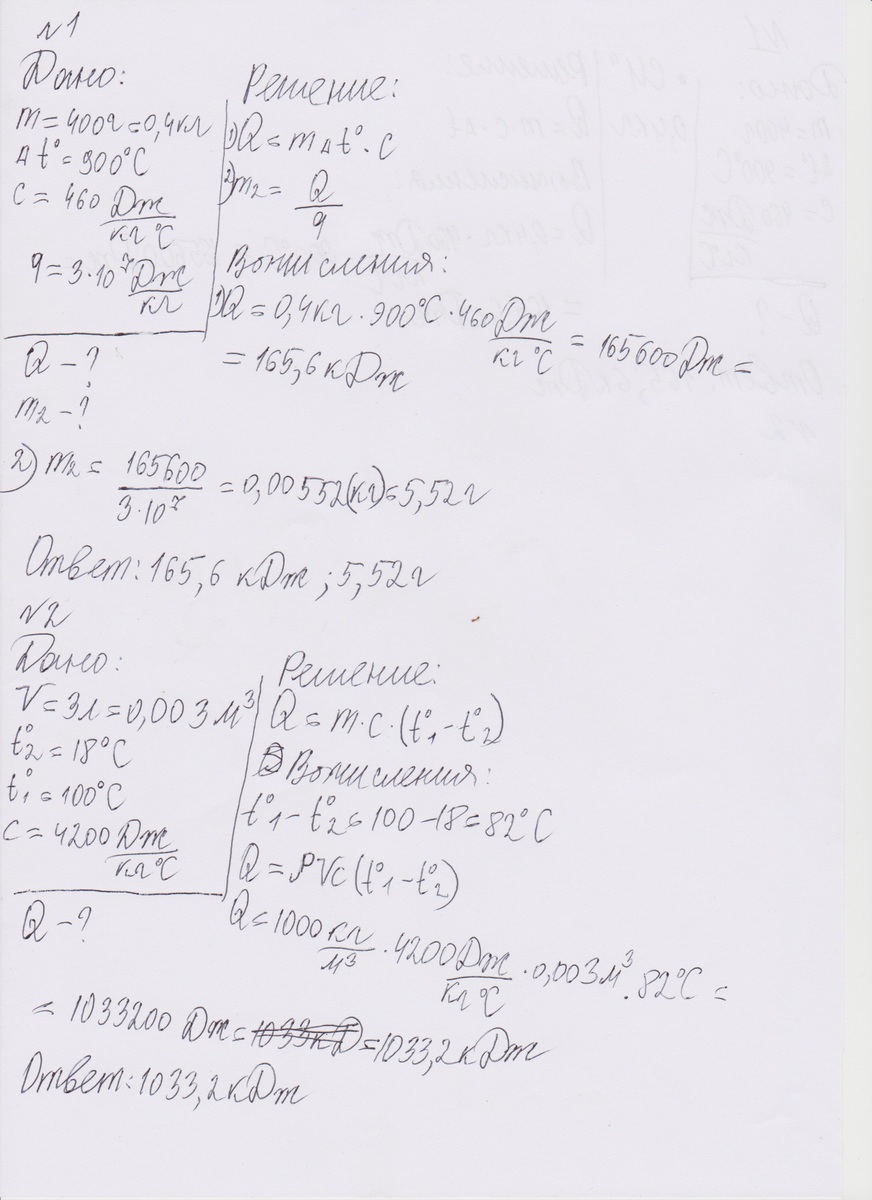 №1
Дано:
m = 400г = 0,4кг
Δt° = 900°C
c = 460 Дж/кг°C
q = 3·10⁷ Дж/кг
Q – ?
m₂ – ?
Решение:
1) Q = mΔt°·c
2) m₂ = Q/q
Вычисления:
1) Q = 0,4кг · 900°C · 460 Дж/кг°C = 165600 Дж =
= 165,6 кДж
2) m₂ = 165600/3·10⁷ = 0,00552(кг) = 5,52г
Ответ: 165,6 кДж ; 5,52г
№2
Дано:
V = 3л = 0,003м³
t°₂ = 18°C
t°₁ = 100°C
c = 4200 Дж/кг°C
Q – ?
Решение:
Q = m·c·(t°₁ – t°₂)
Вычисления:
t°₁ – t°₂ = 100 – 18 = 82°C
Q = ρVc(t°₁ – t°₂)
Q = 1000 кг/м³ · 4200 Дж/кг°C · 0,003м³ · 82°C =
= 1033200 Дж = 1033кД = 1033,2 кДж
Ответ: 1033,2 кДж